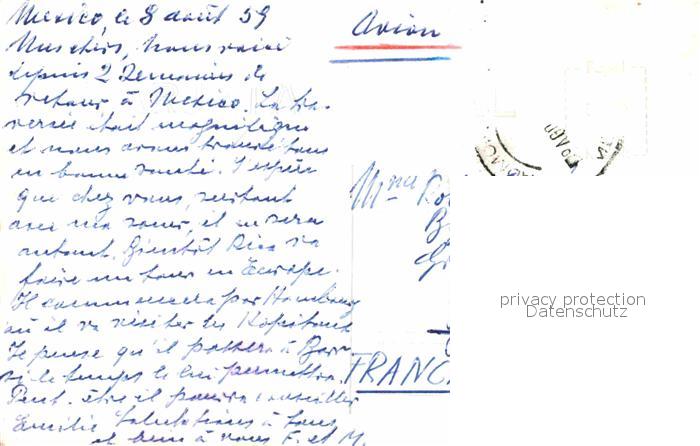 Mexico, le 8 août 59
Mes chers, Nous voici
depuis 2 semaines de
retour à Mexico. La tra-
versée était magnifique
et nous avons tous
en bonne santé. J'espère
que chez vous, surtout
avec ma soeur, il en sera
autant. Bientôt Rico va
faire un tour en Europe.
Il commencera par Hambourg
où il va visiter les
Je pense qu'il passera à
si le temps le lui permettra.
Peut-être il pourra conseiller
Emilie Salutations à tous
et bien à vous F. et M.
Avion
Mme
FRANC
privacy protection
Datenschutz